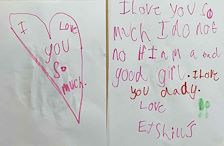 I Love
you
so
much.
I love you so
much I do not
no if I'm a
good girl. I love
you dady.
Love